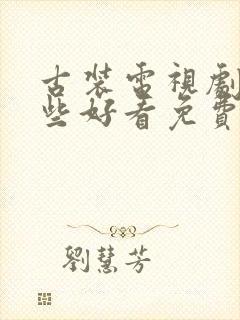 古裝電視劇
些好看免費
劉慧芳